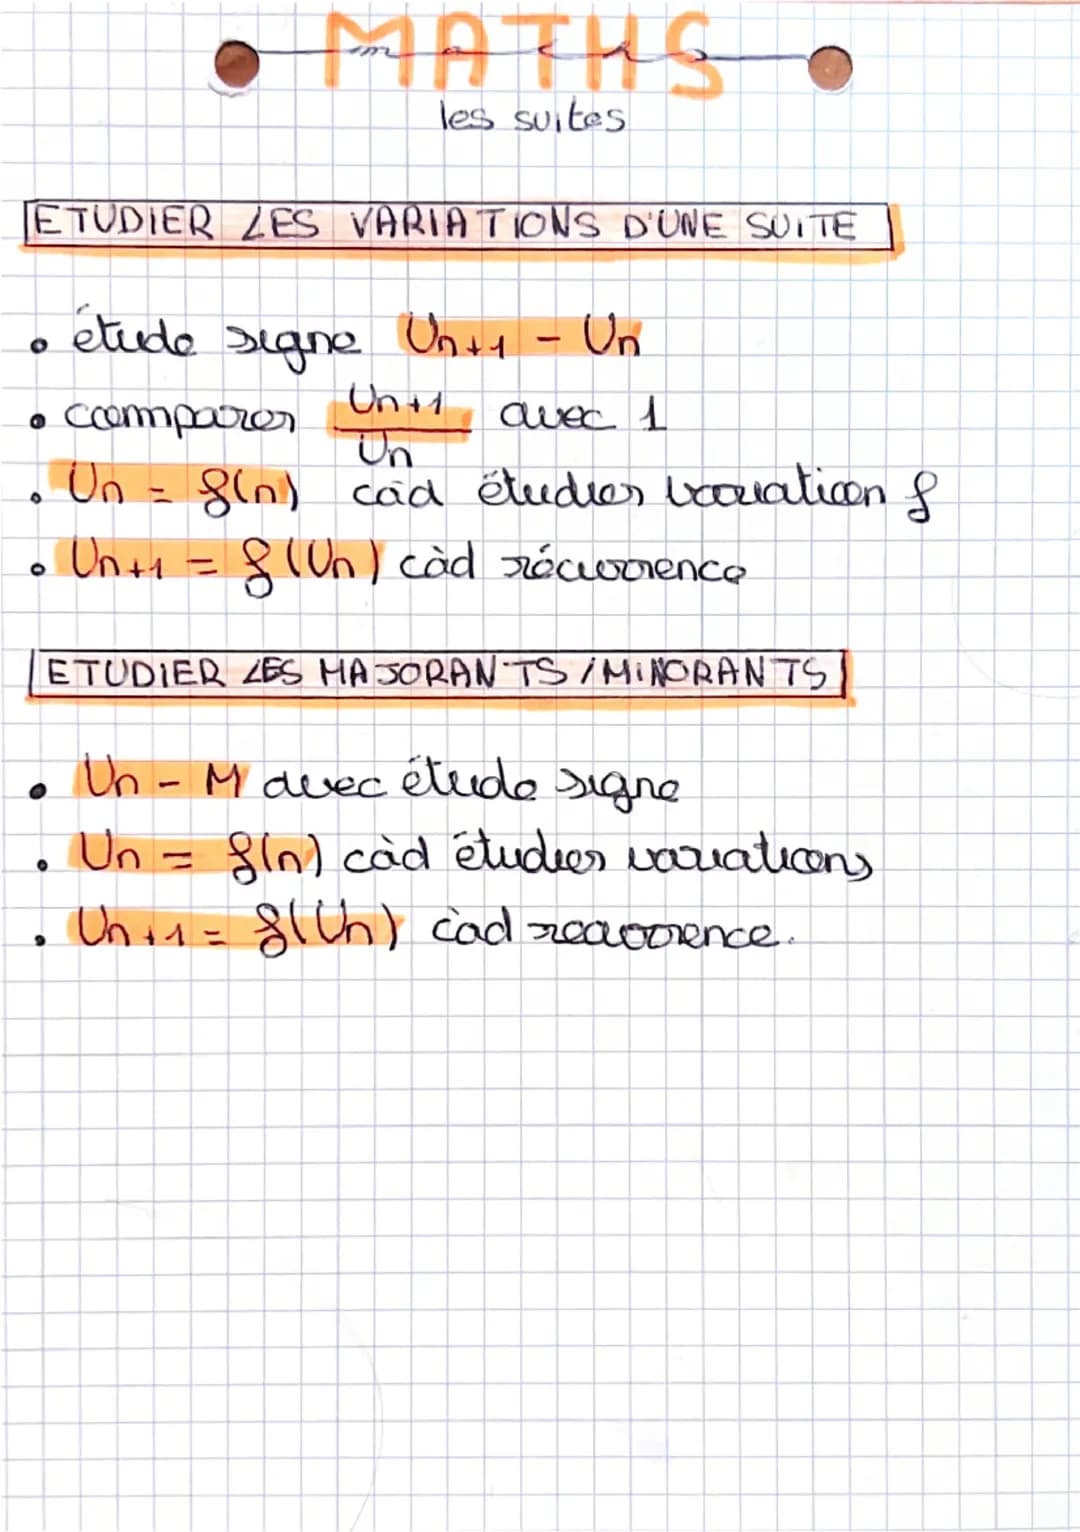 MATHS
maths
les suites
ETUDIER LES VARIATIONS D'UNE SUITE
• étude signe Un+1 - Un
• comparer Un+1/Un avec 1
• Un = f(n) càd étudier variation f
• Un+1 = f(Un) càd récurrence
ETUDIER LES MAJORANTS/MINORANTS
• Un - M avec étude signe
• Un = f(n) càd étudier variations
• Un+1 = f(Un) càd récurrence.